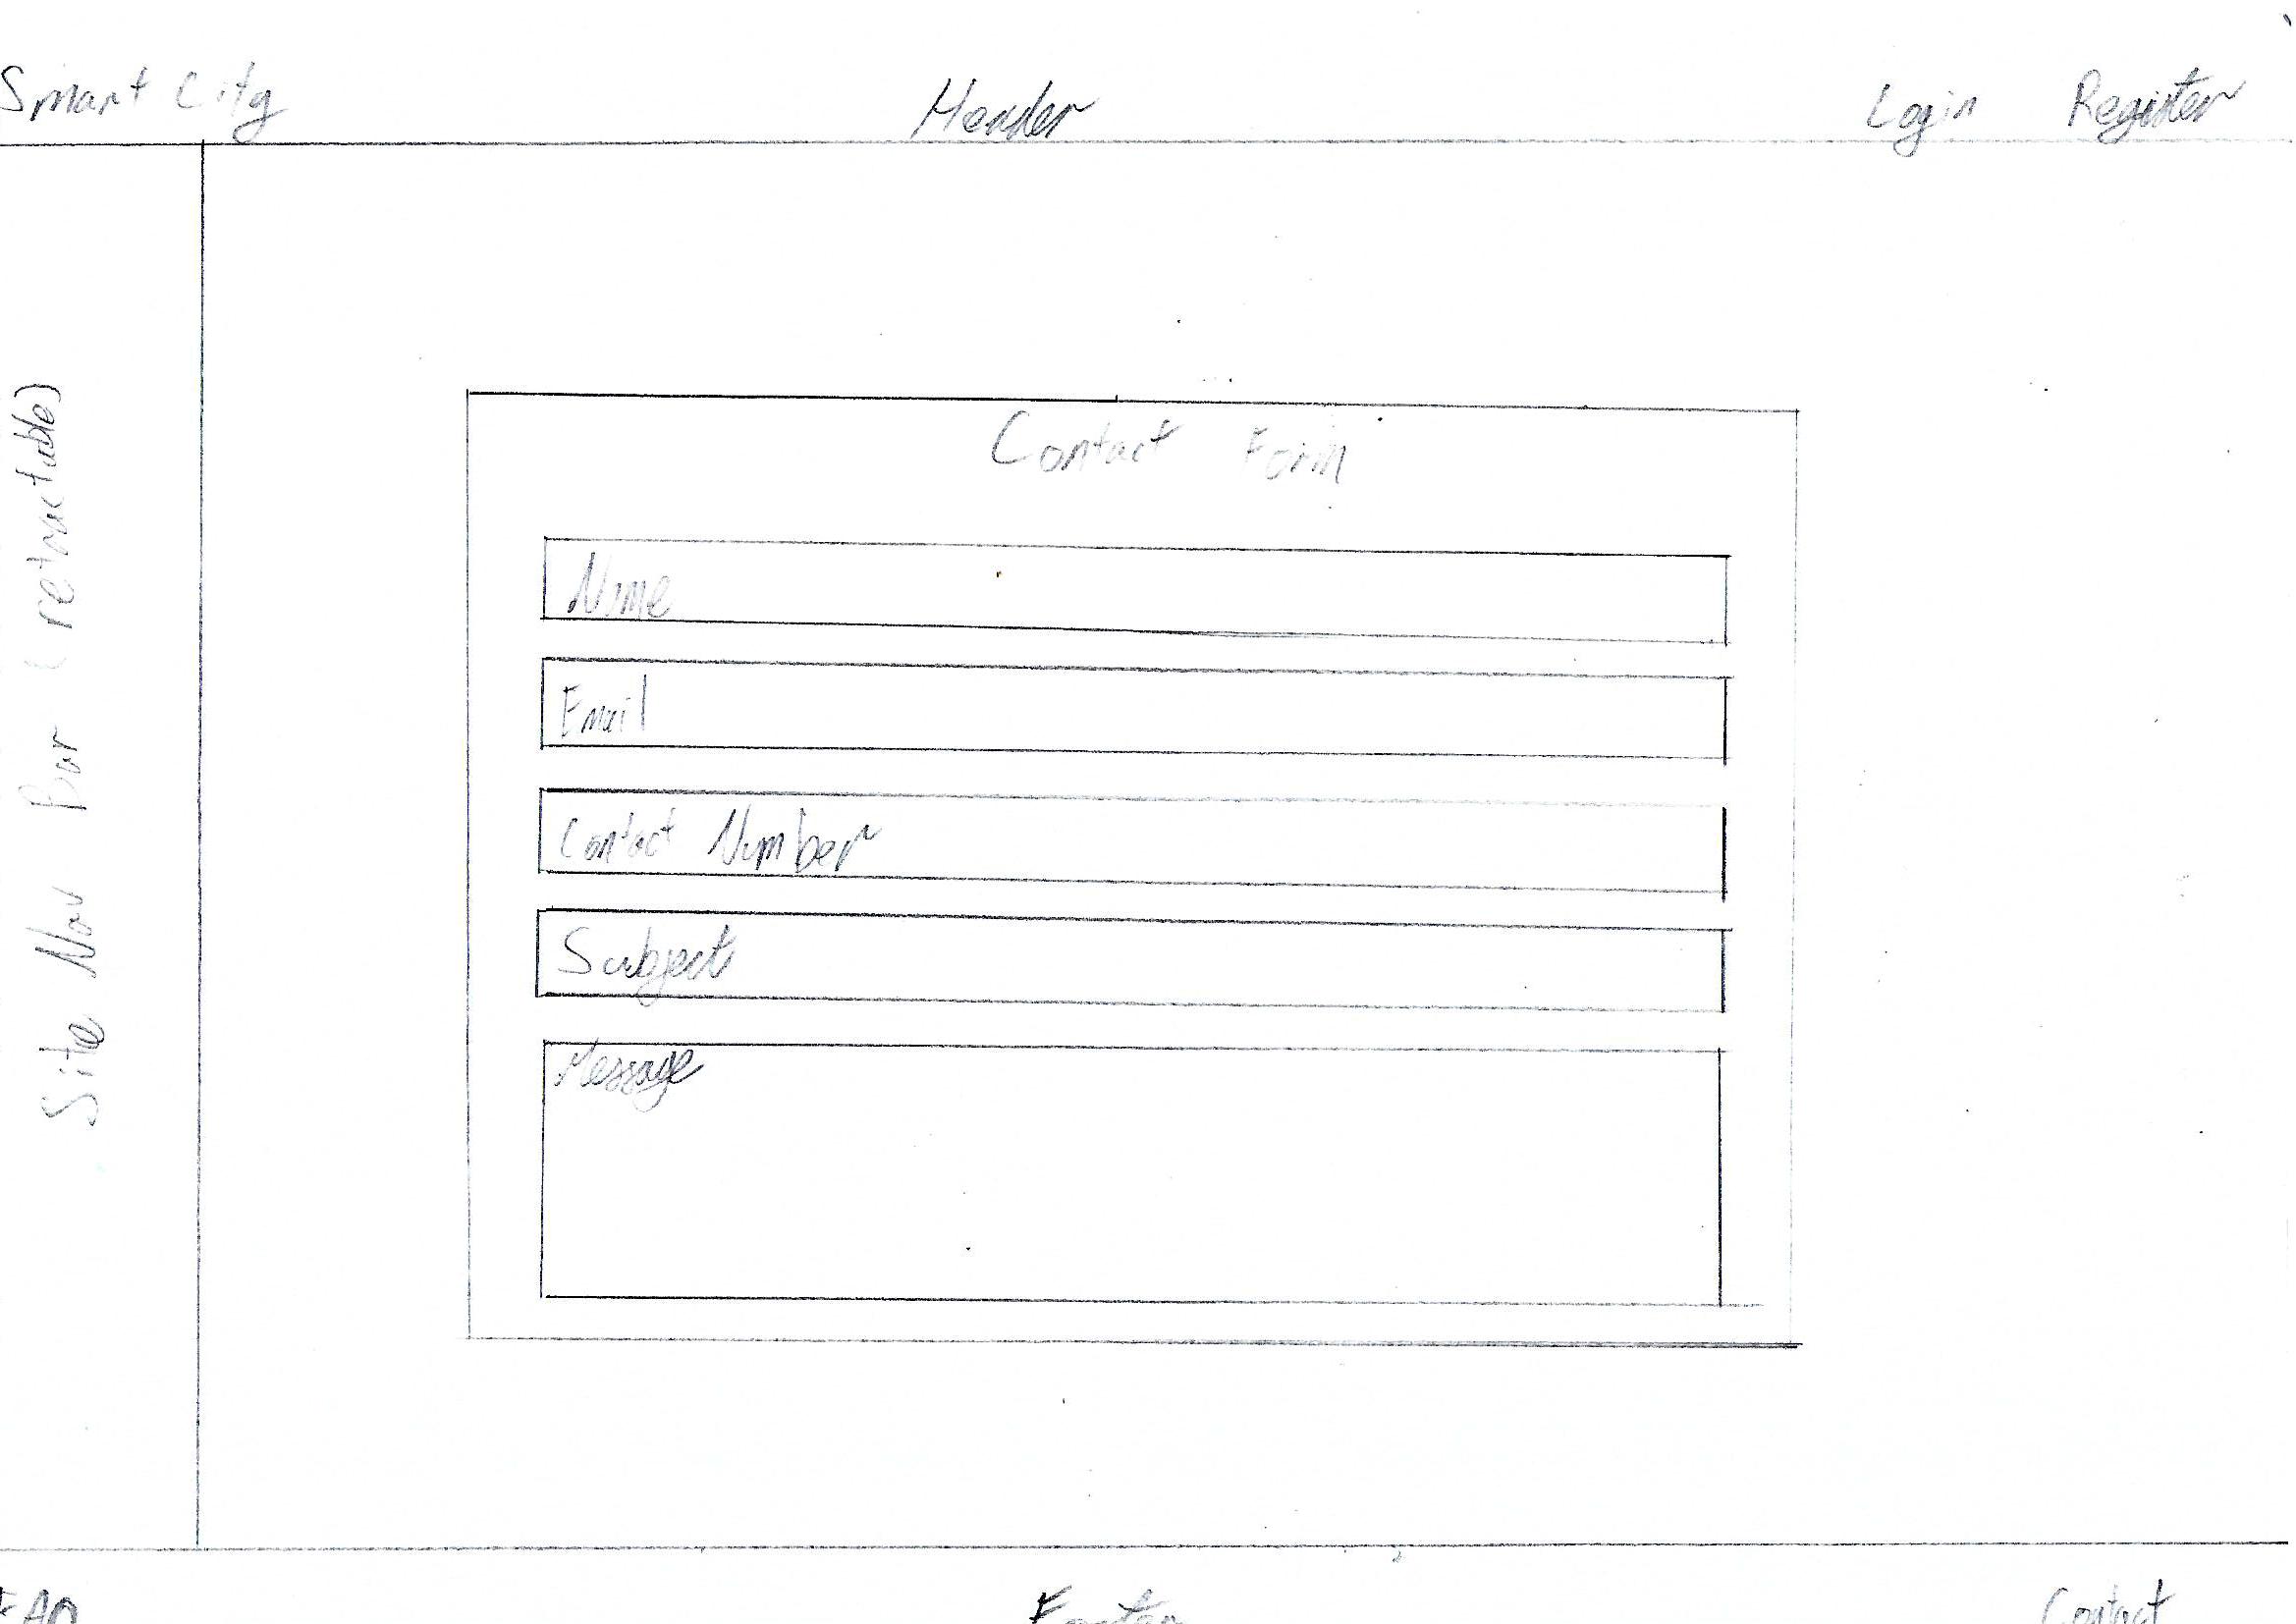 Smart City Header Login Register
Site Nav Bar (retractable)
Contact Form
Name
Email
Contact Number
Subject
Message
FAQ Footer Contact